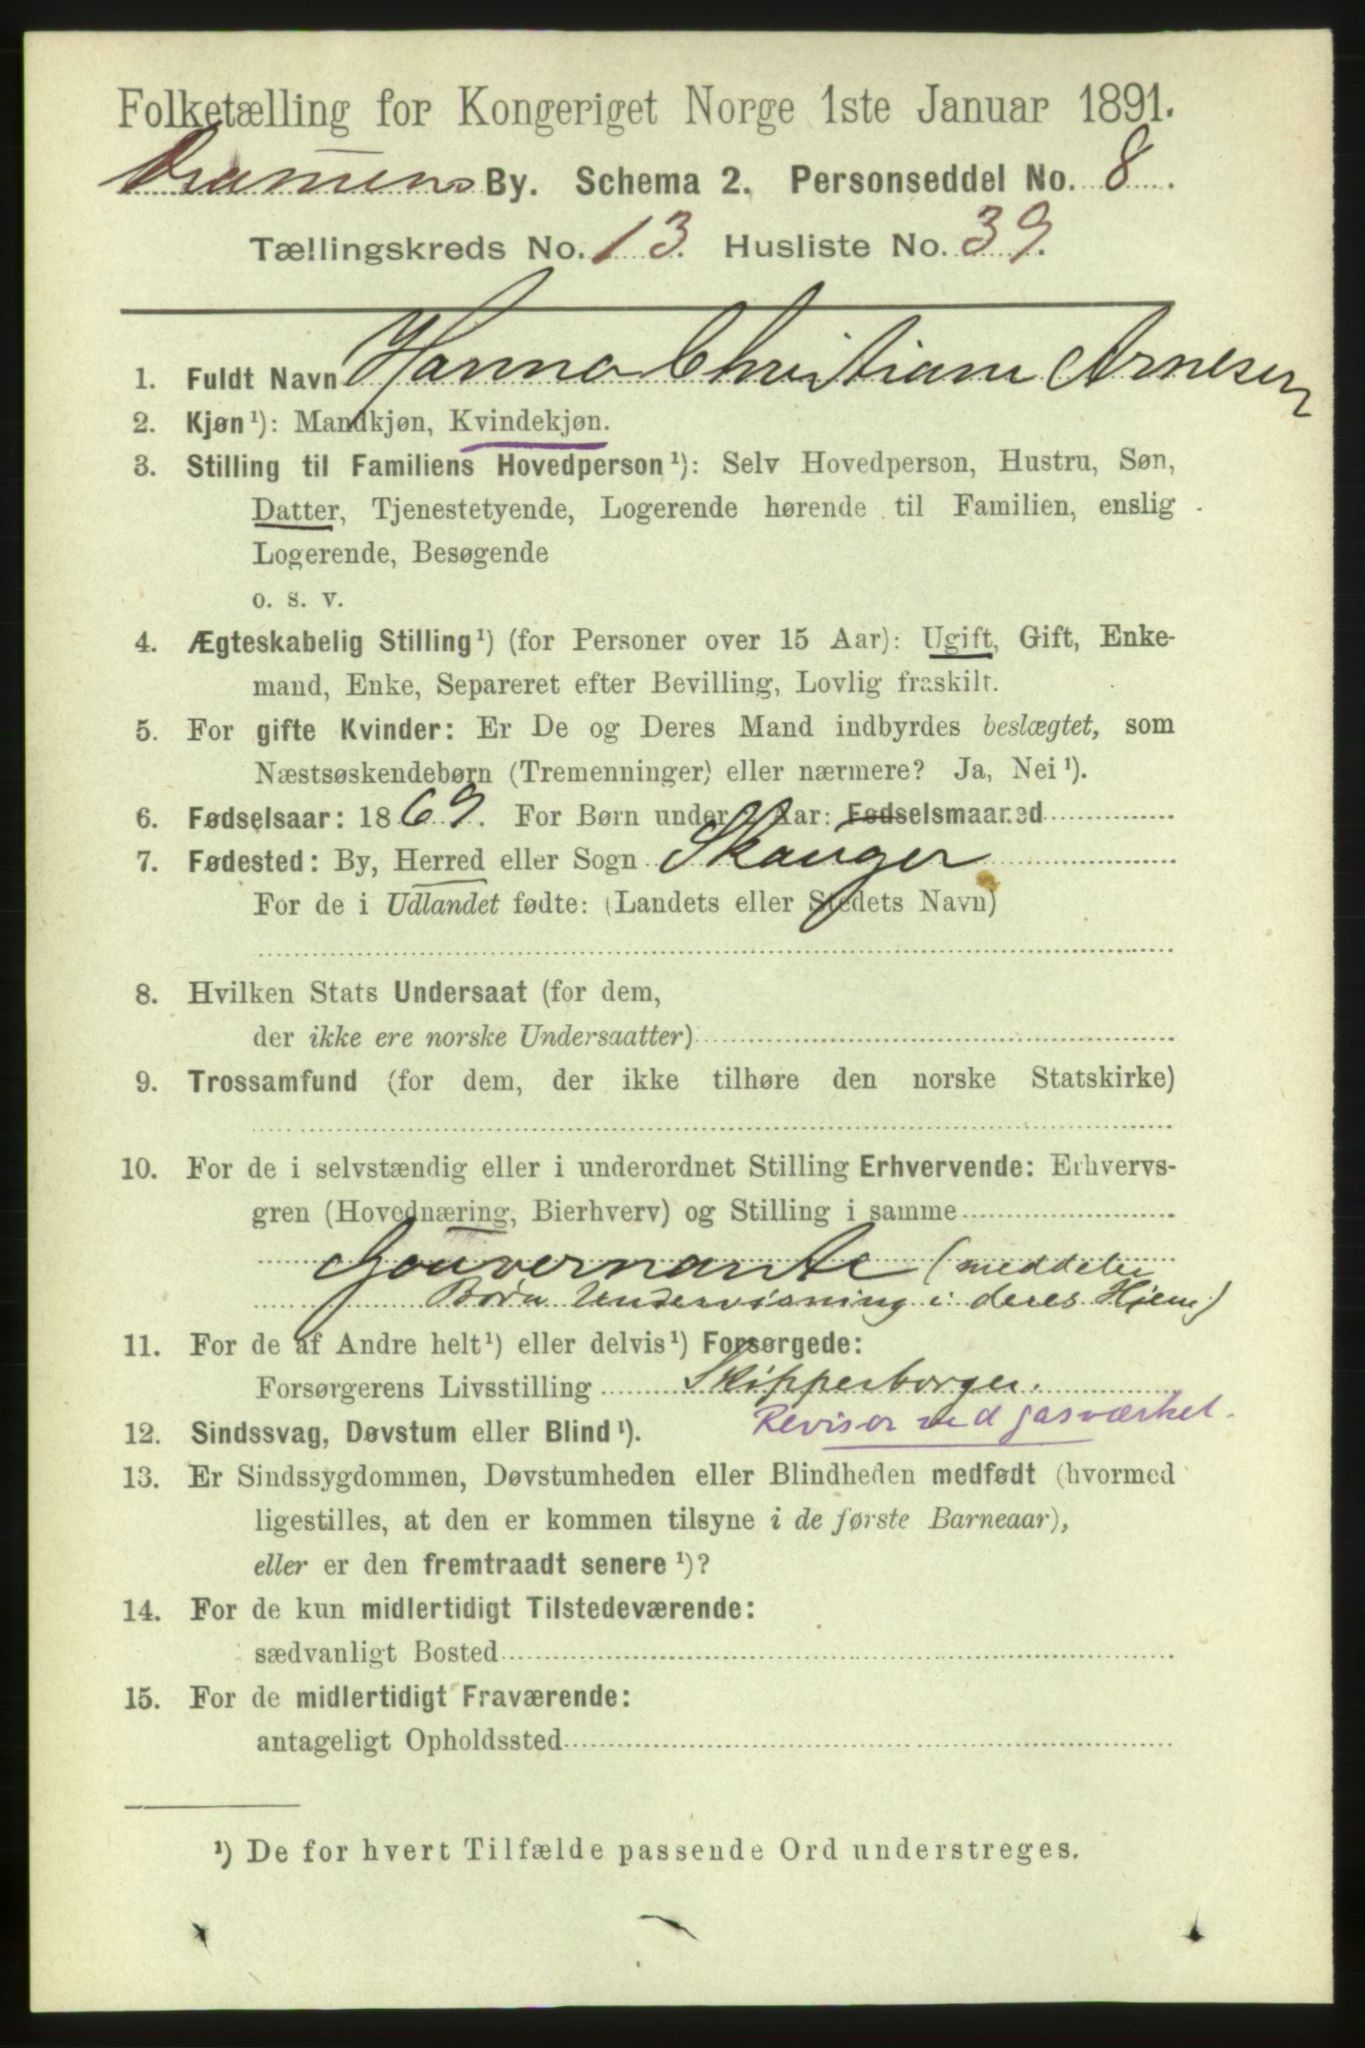 Folketælling for Kongeriget Norge 1ste Januar 1891.
Drammens By. Schema 2. Personseddel No. 8.
Tællingskreds No. 13. Husliste No. 39.
1. Fuldt Navn Hanna Christiane Arnesen
2. Kjøn¹): Mandkjøn, Kvindekjøn.
3. Stilling til Familiens Hovedperson¹): Selv Hovedperson, Hustru, Søn,
Datter, Tjenestetyende, Logerende hørende til Familien, enslig
Logerende, Besøgende
o. s. v.
4. Ægteskabelig Stilling¹) (for Personer over 15 Aar): Ugift, Gift, Enke-
mand, Enke, Separeret efter Bevilling, Lovlig fraskilt.
5. For gifte Kvinder: Er De og Deres Mand indbyrdes beslægtet, som
Næstsøskendebørn (Tremenninger) eller nærmere? Ja, Nei¹).
6. Fødselsaar: 1869. For Børn under 2 Aar: Fødselsmaaned
7. Fødested: By, Herred eller Sogn Skauger
For de i Udlandet fødte: (Landets eller Stedets Navn)
8. Hvilken Stats Undersaat (for dem,
der ikke ere norske Undersaatter)
9. Trossamfund (for dem, der ikke tilhøre den norske Statskirke)
10. For de i selvstændig eller i underordnet Stilling Erhvervende: Erhvervs-
gren (Hovednæring, Bierhverv) og Stilling i samme
Gouvernante (meddeler
Børn Undervisning i deres Hjem)
11. For de af Andre helt¹) eller delvis¹) Forsørgede:
Forsørgerens Livsstilling Skipperborger.
Revisor ved gasværket.
12. Sindssvag, Døvstum eller Blind¹).
13. Er Sindssygdommen, Døvstumheden eller Blindheden medfødt (hvormed
ligestilles, at den er kommen tilsyne i de første Barneaar),
eller er den fremtraadt senere¹)?
14. For de kun midlertidigt Tilstedeværende:
sædvanligt Bosted
15. For de midlertidigt Fraværende:
antageligt Opholdssted
¹) De for hvert Tilfælde passende Ord understreges.